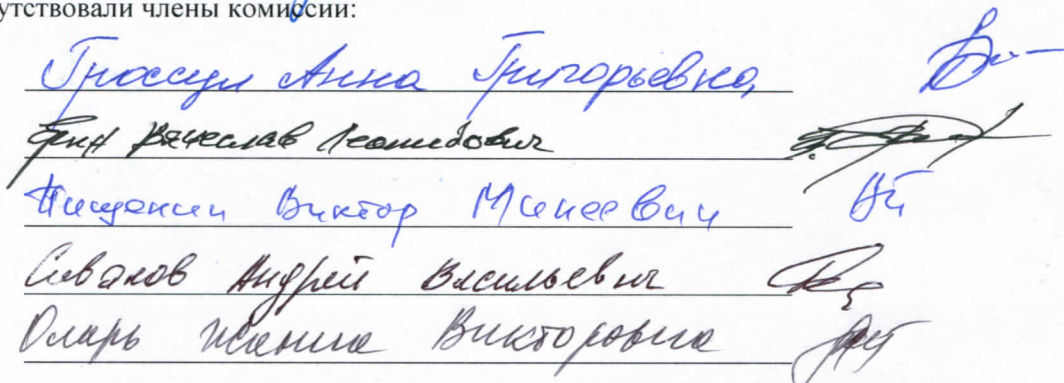 утствовали члены комиссии:
Гроссул Анна Григорьевна
Ерин Вячеслав Леонидович
Виктор Минеевич
Андрей Васильевич
Оларь Жанна Викторовна